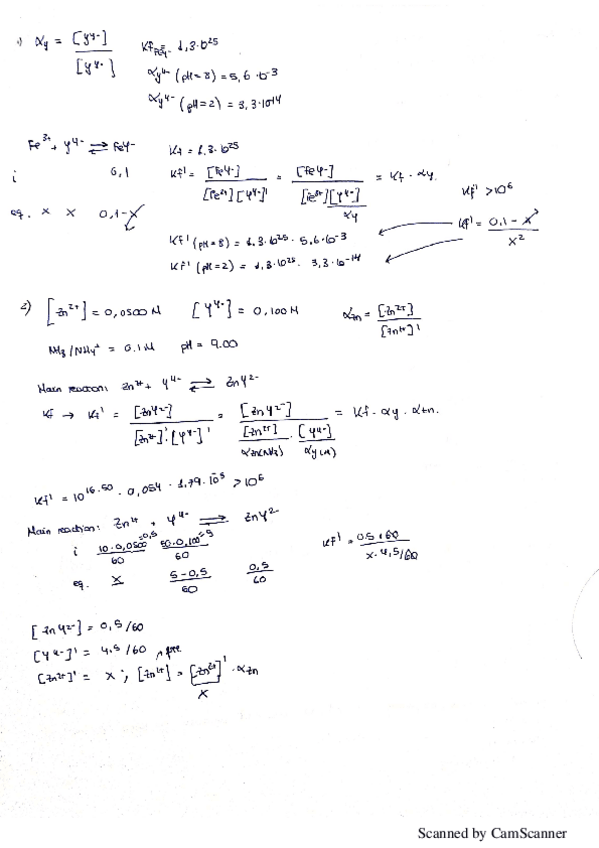 1) αy = [Y4-] / [Y4-] Kf FeY- = 1,3·10^25
αy4- (pH=8) = 5,6·10^-3
αy4- (pH=2) = 3,3·10^14
Fe3+ + Y4- ⇌ FeY- Kf = 1.3·10^25
i 0,1 Kf' = [FeY-] / [Fe3+][Y4-]' = [FeY-] / [Fe3+] [Y4-]/αy = Kf · αy.
Kf' > 10^6
eq. x x 0,1-x Kf' = 0,1-x / x^2
Kf' (pH=8) = 1.3·10^25 · 5,6·10^-3
Kf' (pH=2) = 1,3·10^25 · 3,3·10^-14
2) [Zn2+] = 0,0500 M [Y4-] = 0,100 M αZn = [Zn2+] / [Zn2+]'
NH3/NH4+ = 0.1 M pH = 9.00
Main reaction: Zn2+ + Y4- ⇌ ZnY2-
Kf → Kf' = [ZnY2-] / [Zn2+]'·[Y4-]' = [ZnY2-] / [Zn2+]/αZn(NH3) · [Y4-]/αy(H) = Kf · αy · αZn.
Kf' = 10^16.50 · 0,054 · 1,79·10^-5 > 10^6
Main reaction: Zn2+ + Y4- ⇌ ZnY2-
i 10·0,0500 =0,5 / 60 50·0,100 =5 / 60 Kf' = 0,5/60 / x·4,5/60
eq. x 5-0,5 / 60 0,5 / 60
[ZnY2-] = 0,5/60
[Y4-]' = 4,5/60 free
[Zn2+]' = x ; [Zn2+] = [Zn2+]' · αZn
x
Scanned by CamScanner